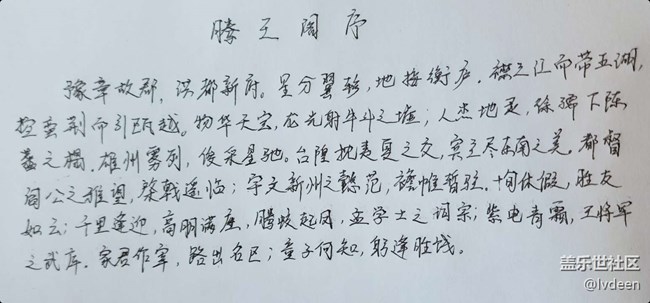 滕王阁序
豫章故郡，洪都新府。星分翼轸，地接衡庐。襟三江而带五湖，
控蛮荆而引瓯越。物华天宝，龙光射牛斗之墟；人杰地灵，徐孺下陈
蕃之榻。雄州雾列，俊采星驰。台隍枕夷夏之交，宾主尽东南之美。都督
阎公之雅望，棨戟遥临；宇文新州之懿范，襜帷暂驻。十旬休假，胜友
如云；千里逢迎，高朋满座，腾蛟起凤，孟学士之词宗；紫电青霜，王将军
之武库。家君作宰，路出名区；童子何知，躬逢胜饯。
盖乐世社区
@lvdeen